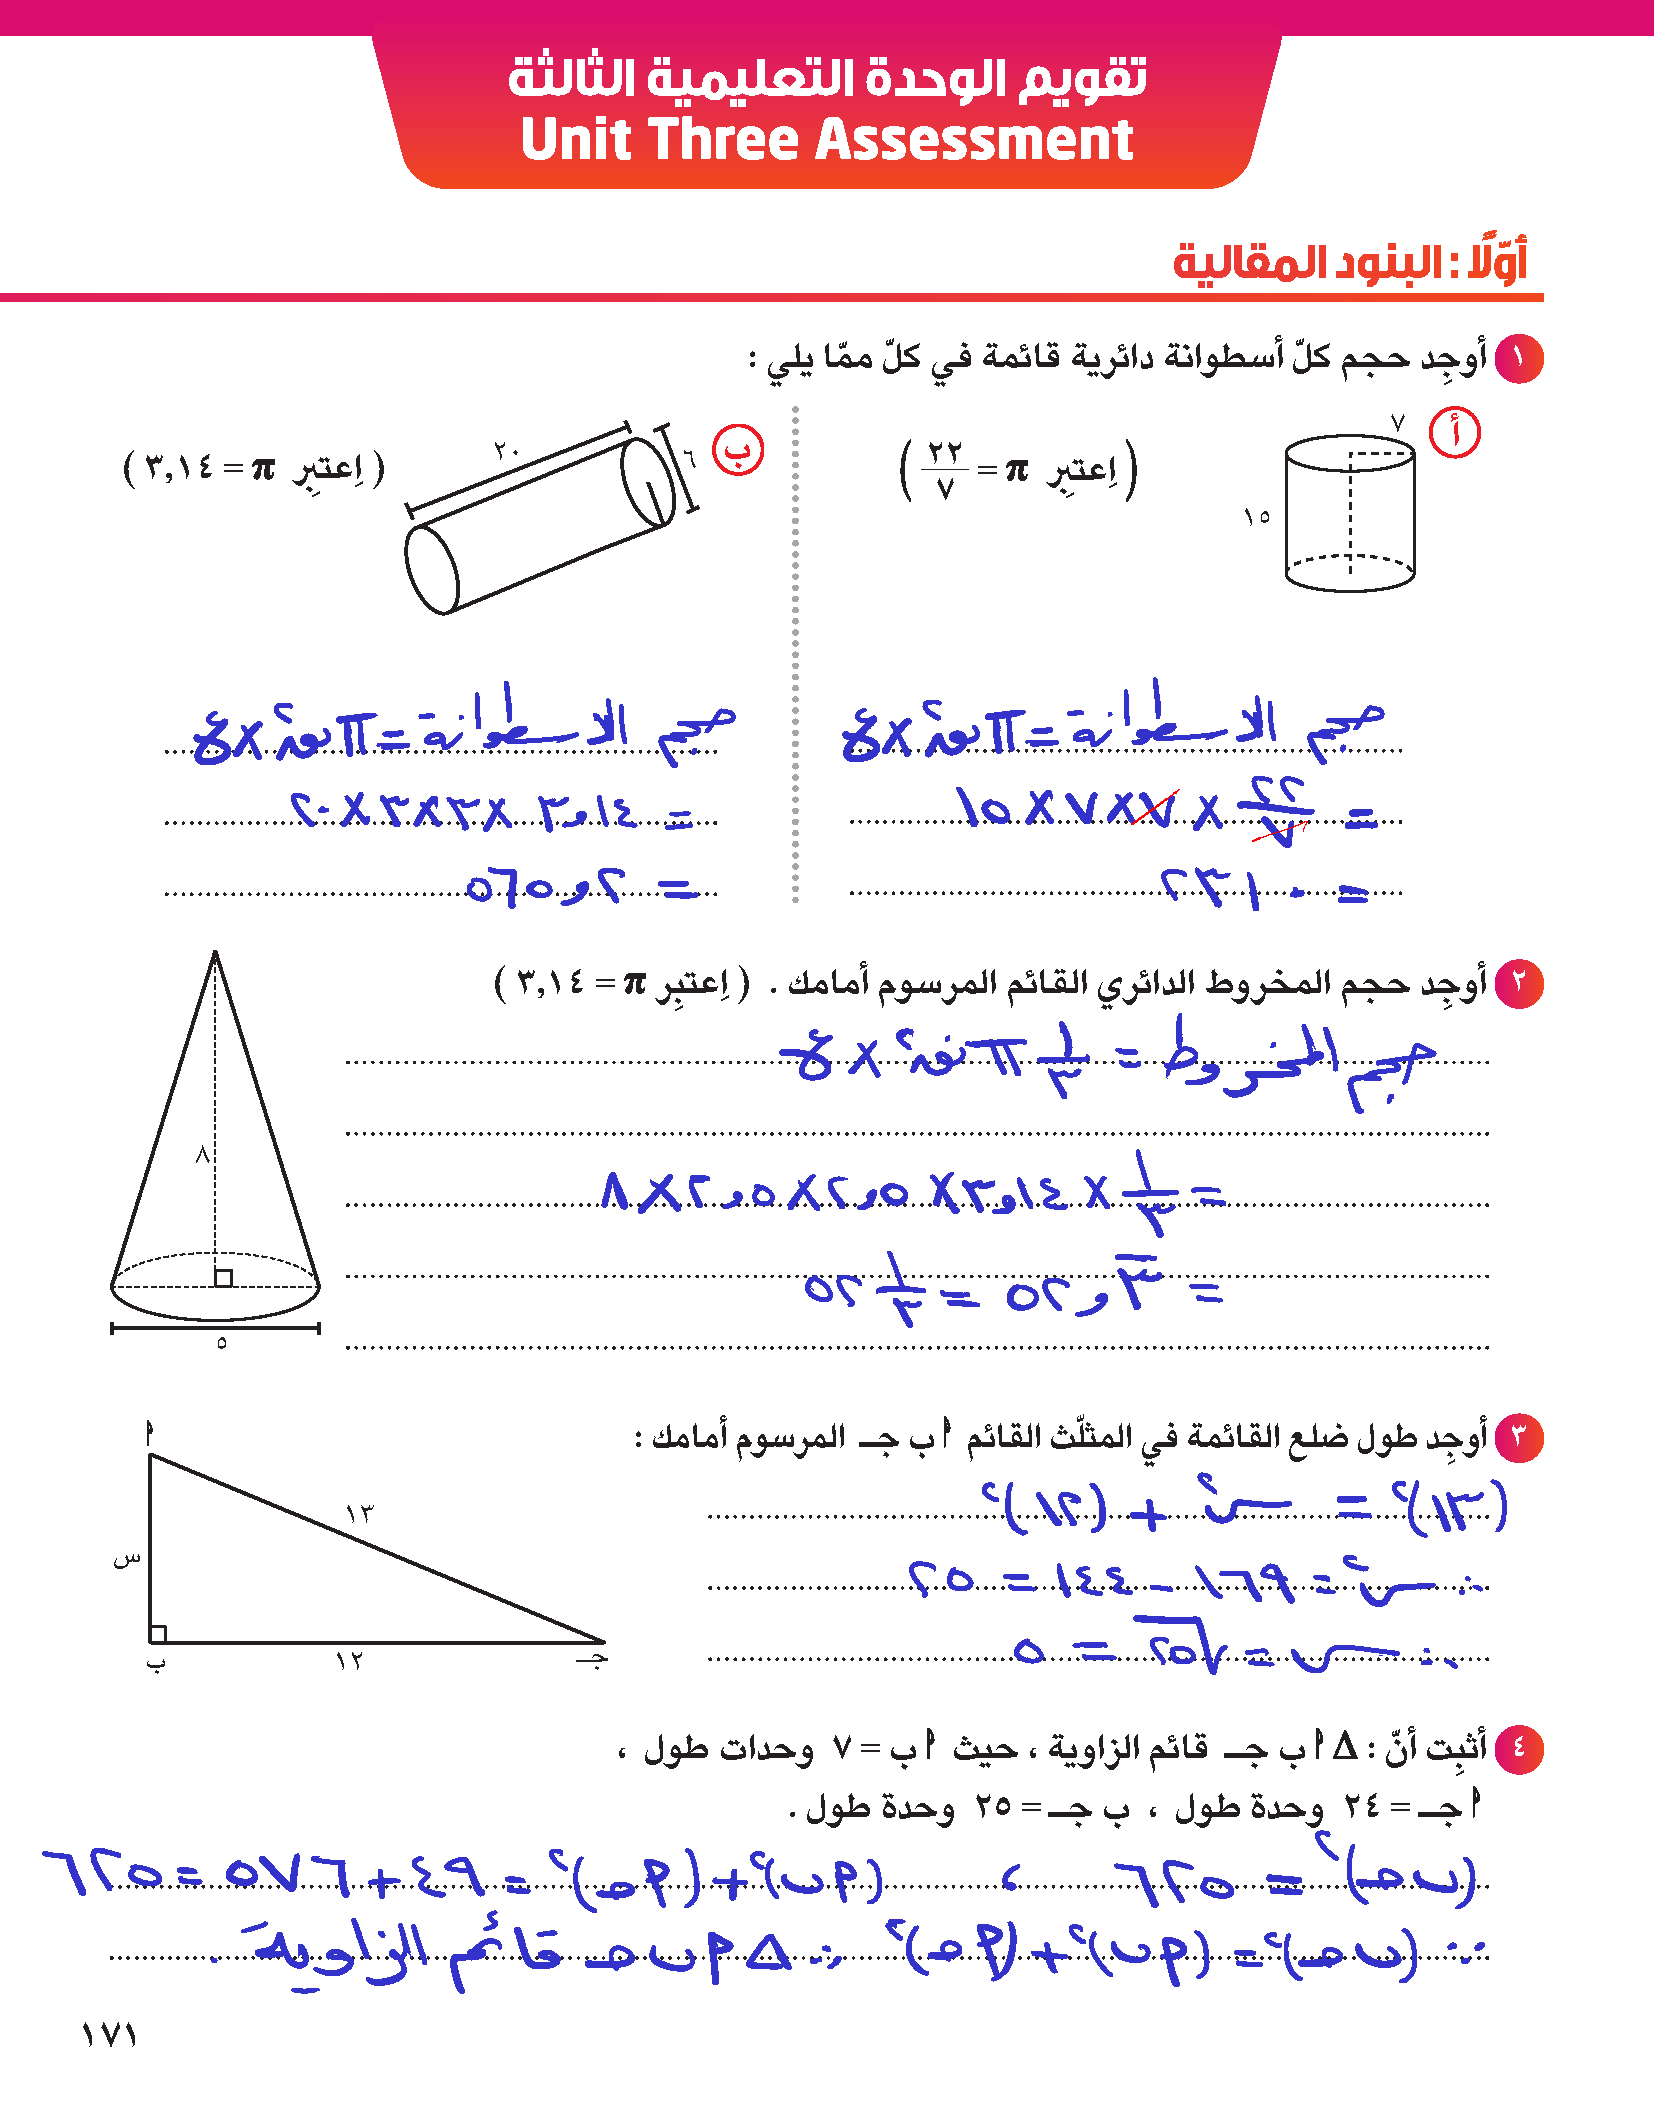 تقويم الوحدة التعليمية الثالثة
Unit Three Assessment
أوّلًا : البنود المقالية
١ أوجِد حجم كلّ أسطوانة دائرية قائمة في كلّ ممّا يلي :
أ
٧
١٥
( اِعتبِر π = ٢٢/٧ )
حجم الاسطوانة = π نق٢ × ع
= ٢٢/٧ × ٧ × ٧ × ١٥
= ٢٣١٠
ب
٦
٢٠
( اِعتبِر π = ٣,١٤ )
حجم الاسطوانة = π نق٢ × ع
= ٣و١٤ × ٣ × ٣ × ٢٠
= ٥٦٥و٢
٢ أوجِد حجم المخروط الدائري القائم المرسوم أمامك . ( اِعتبِر π = ٣,١٤ )
حجم المخروط = ١/٣ π نق٢ × ع
= ١/٣ × ٣و١٤ × ٢و٥ × ٢و٥ × ٨
= ٥٢و٣̅ = ٥٢ ١/٣
٨
٥
٣ أوجِد طول ضلع القائمة في المثلّث القائم أ ب جـ المرسوم أمامك :
(١٣)٢ = س٢ + (١٢)٢
∴ س٢ = ١٦٩ − ١٤٤ = ٢٥
∴ س = √٢٥ = ٥
أ
١٣
س
ب
١٢
جـ
٤ أثبِت أنّ : Δ أ ب جـ قائم الزاوية ، حيث أ ب = ٧ وحدات طول ،
أ جـ = ٢٤ وحدة طول ، ب جـ = ٢٥ وحدة طول .
(ب جـ)٢ = ٦٢٥ ، (أ ب)٢ + (أ جـ)٢ = ٤٩ + ٥٧٦ = ٦٢٥
∵ (ب جـ)٢ = (أ ب)٢ + (أ جـ)٢ ∴ Δ أ ب جـ قائم الزاوية .
١٧١